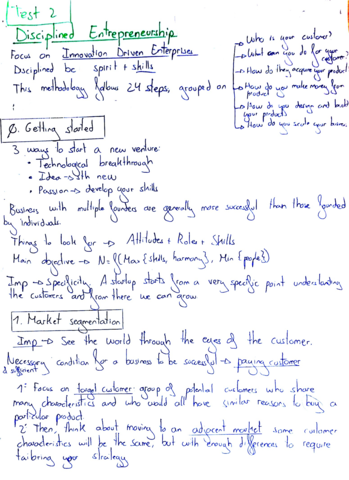 Test 2
Disciplined Entrepreneurship
Focus on Innovation Driven Enterprises
Disciplined be spirit + skills
This methodology follows 24 steps, grouped on
→ Who is your customer?
→ What can you do for your customer?
→ How do they acquire your product
→ How do you make money from product
→ How do you design and build your products
→ How do you scale your business
0. Getting started
3 ways to start a new venture:
• Technological breakthrough
• Idea → sth new
• Passion → develop your skills
Business with multiple founders are generally more successful than those founded
by individuals.
Things to look for → Attitudes + Roles + Skills
Main objective → N = f(Max {skills, harmony}, Min {people})
Imp → Specificity. A startup starts from a very specific point understanding
the customers and from there we can grow
1. Market segmentation
Imp → See the world through the eyes of the customer.
Necessary & sufficient condition for a business to be successful → paying customer
1º Focus on target customer: group of potential customers who share
many characteristics and who would all have similar reasons to buy a
particular product
2º Then, think about moving to an adjacent market some customer
characteristics will be the same, but with enough differences to require
tailoring your strategy